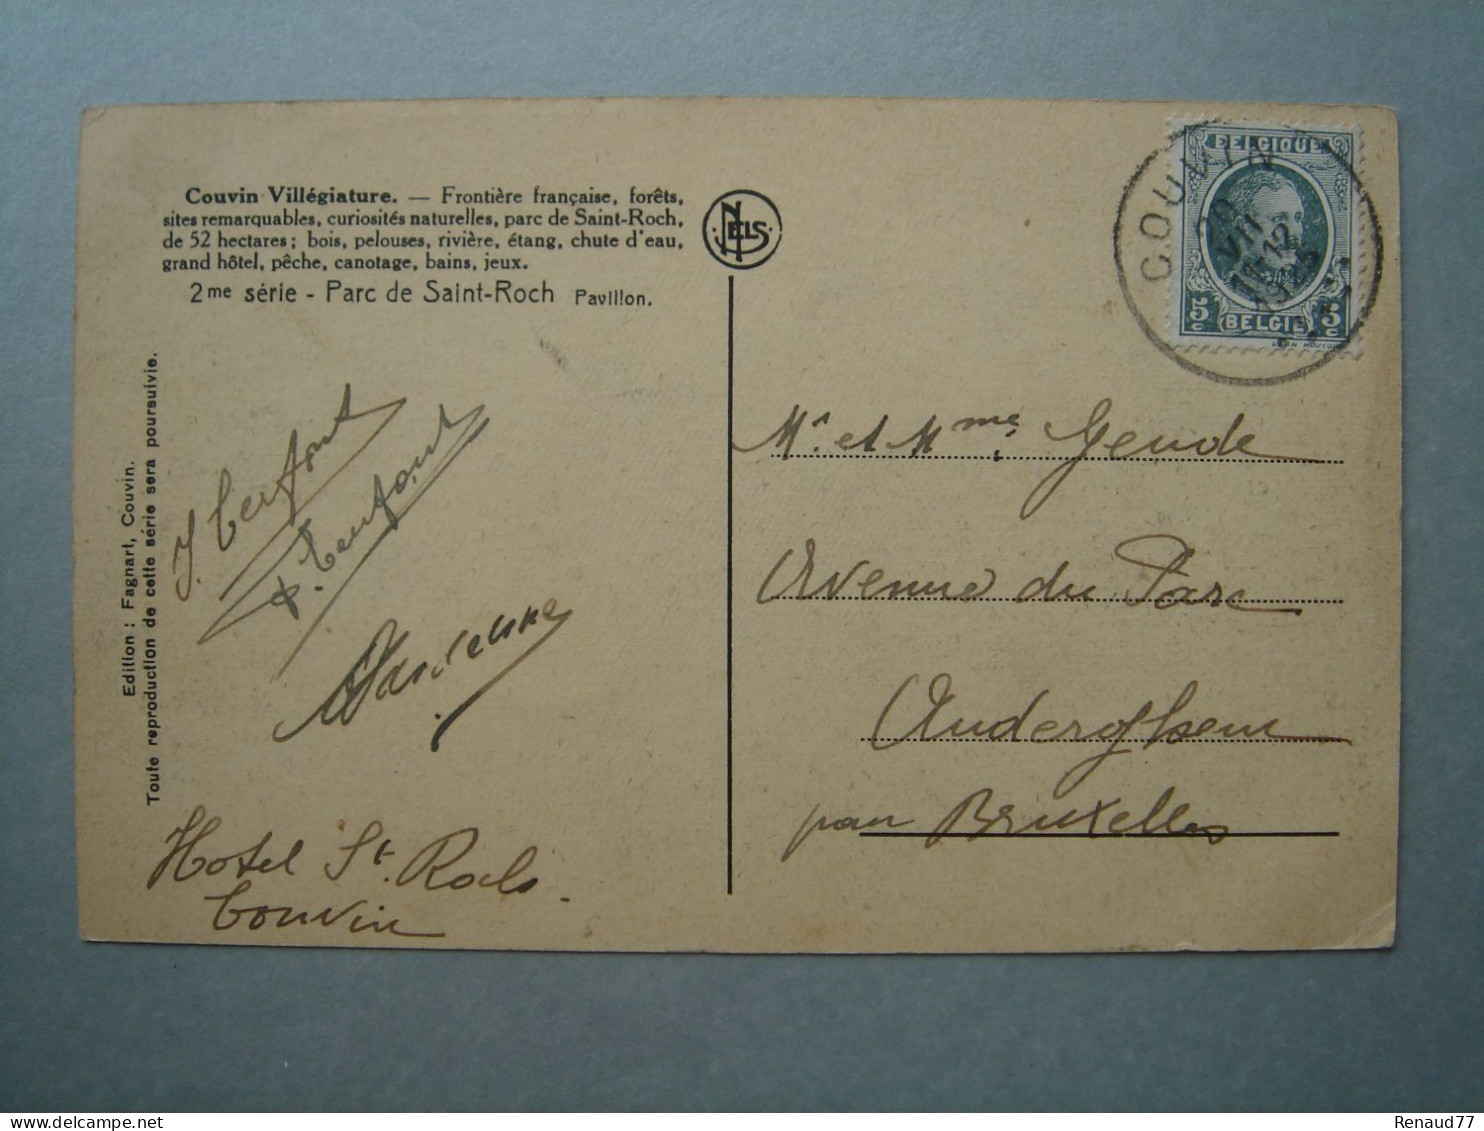 Couvin Villégiature. — Frontière française, forêts,
sites remarquables, curiosités naturelles, parc de Saint-Roch,
de 52 hectares; bois, pelouses, rivière, étang, chute d'eau,
grand hôtel, pêche, canotage, bains, jeux.
2me série - Parc de Saint-Roch Pavillon.
Edition : Fagnart, Couvin.
Toute reproduction de cette série sera poursuivie.
NELS
COUVIN
VII
12
BELGIQUE
5c BELGIË 5c
J. Terfont
Hotel St. Rochs.
Couvin
Mr. et Mme Gende
Avenue du Parc
Auderghem
par Bruxelles
Renaud77